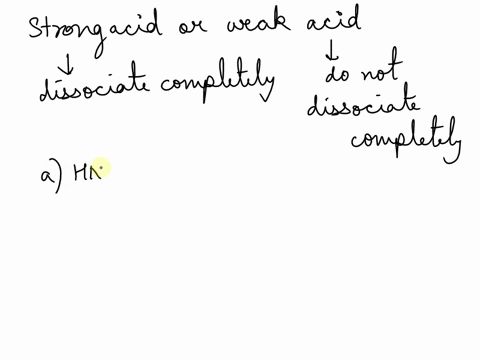 Strong acid or weak acid
↓ ↓
dissociate completely do not
dissociate
completely
a) HN